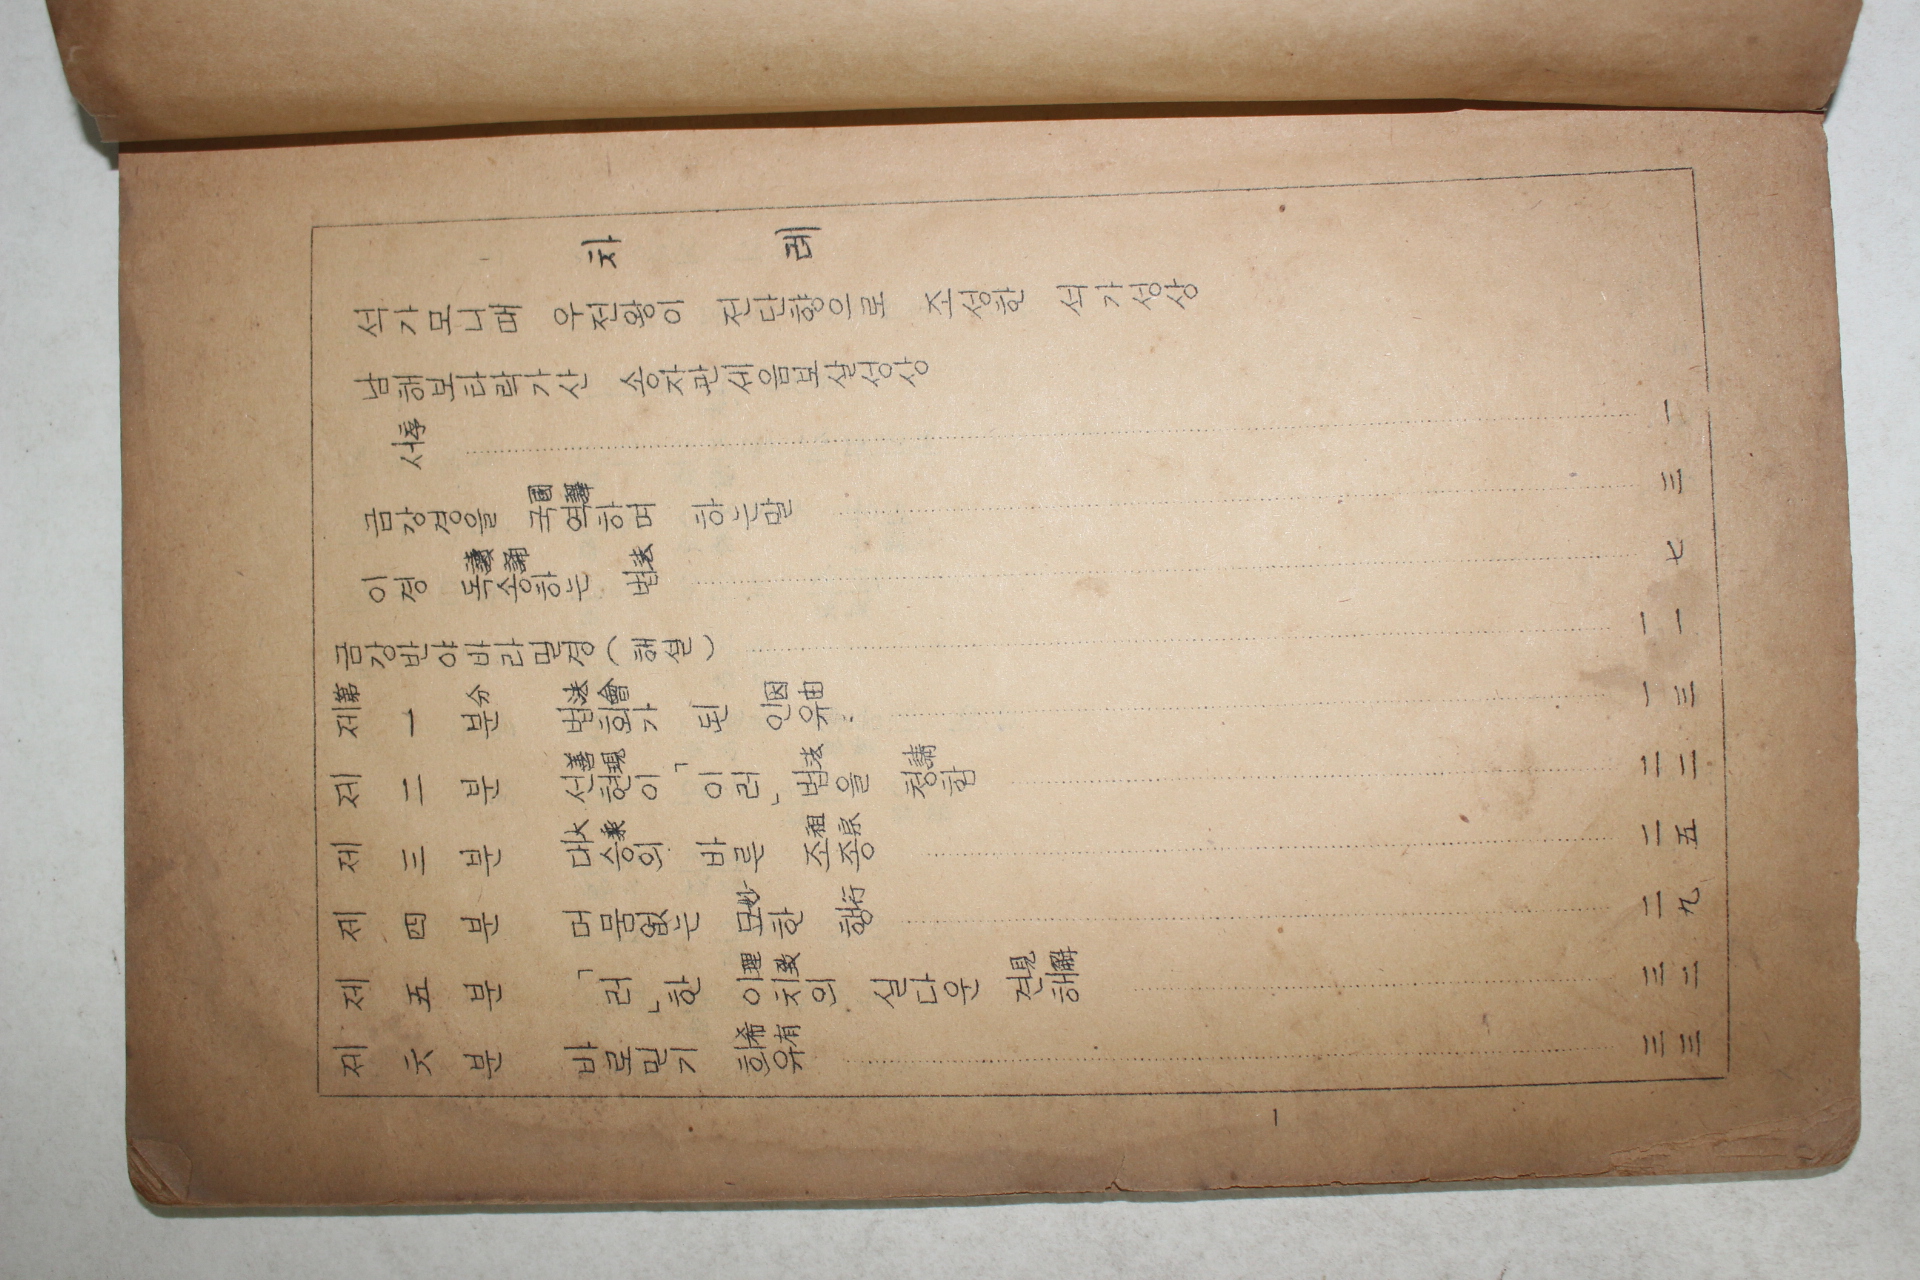 차 례
석가모니때 우전왕이 전단향으로 조성한 석가성상
남해보타락가산 송자관세음보살성상
서序 一
금강경을 국國역譯하며 하는말 三
이경 독讀송誦하는 법法 七
금강반야바라밀경(해설) 一一
제第 一 분分 법法회會가 된 인因유由 一三
제 二 분 선善현現이 「이러」 법法을 청請함 二二
제 三 분 대大승乘의 바른 조祖종宗 二五
제 四 분 머뭄없는 묘妙한 행行 二九
제 五 분 「러」한 이理치致의 실다운 견見해解 三二
제 六 분 바로믿기 희希유有 三三
1